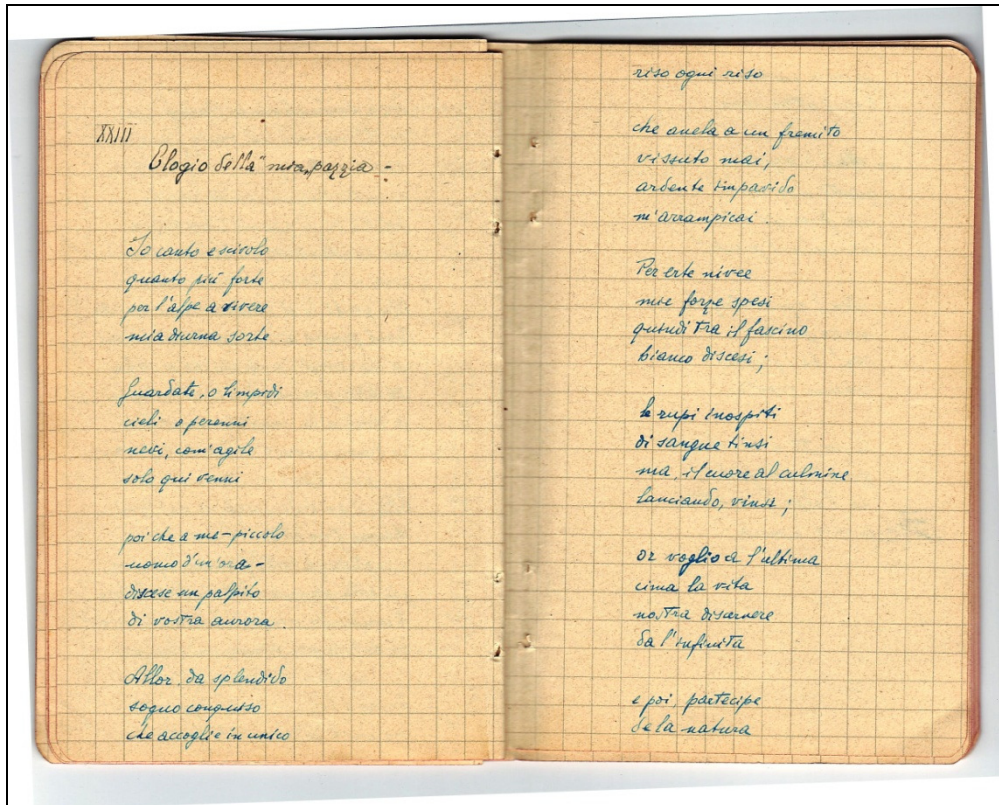 XXIII
Elogio della "mia" pazzia -
Io canto e scivolo
quanto più forte
per l'alpe a vivere
mia diurna sorte
Guardate, o limpidi
cieli o perenni
nevi, com'agile
solo qui venni
poi che a me - piccolo
uomo d'un'ora -
discese un palpito
di vostra aurora.
Allor, da splendido
sogno conquiso
che accoglie in unico
riso ogni riso
che anela a un fremito
vissuto mai,
ardente impavido
m'arrampicai.
Per erte nivee
mie forze spesi
quindi tra il fascino
bianco discesi;
le rupi inospiti
di sangue tinsi
ma, il cuore al culmine
lanciando, vinsi;
or voglio a l'ultima
cima la vita
nostra discernere
da l'infinita
e poi, partecipe
de la natura